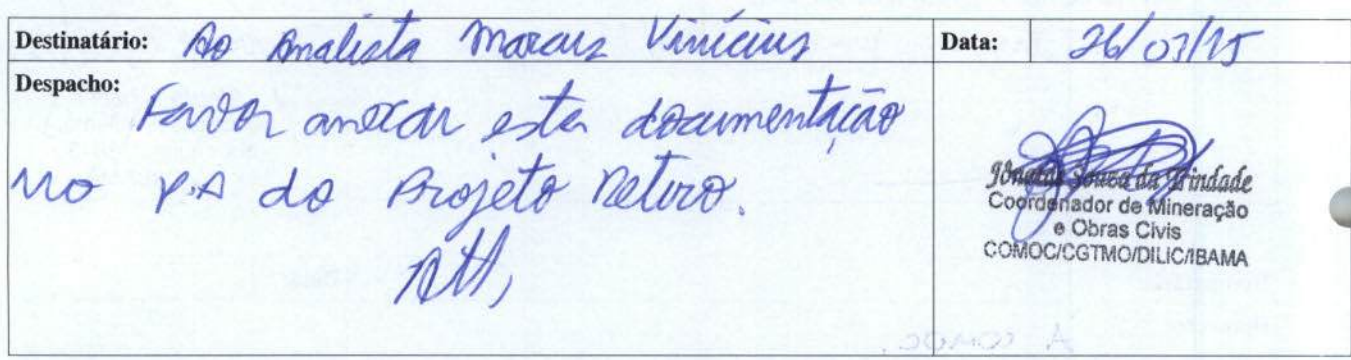 Destinatário: Ao Analista Marcus Vinícius Data: 26/03/15
Despacho:
Favor anexar esta documentação
no P.A do Projeto Retiro.
Att,
Jônatas Souza da Trindade
Coordenador de Mineração
e Obras Civis
COMOC/CGTMO/DILIC/IBAMA
A COMOC.